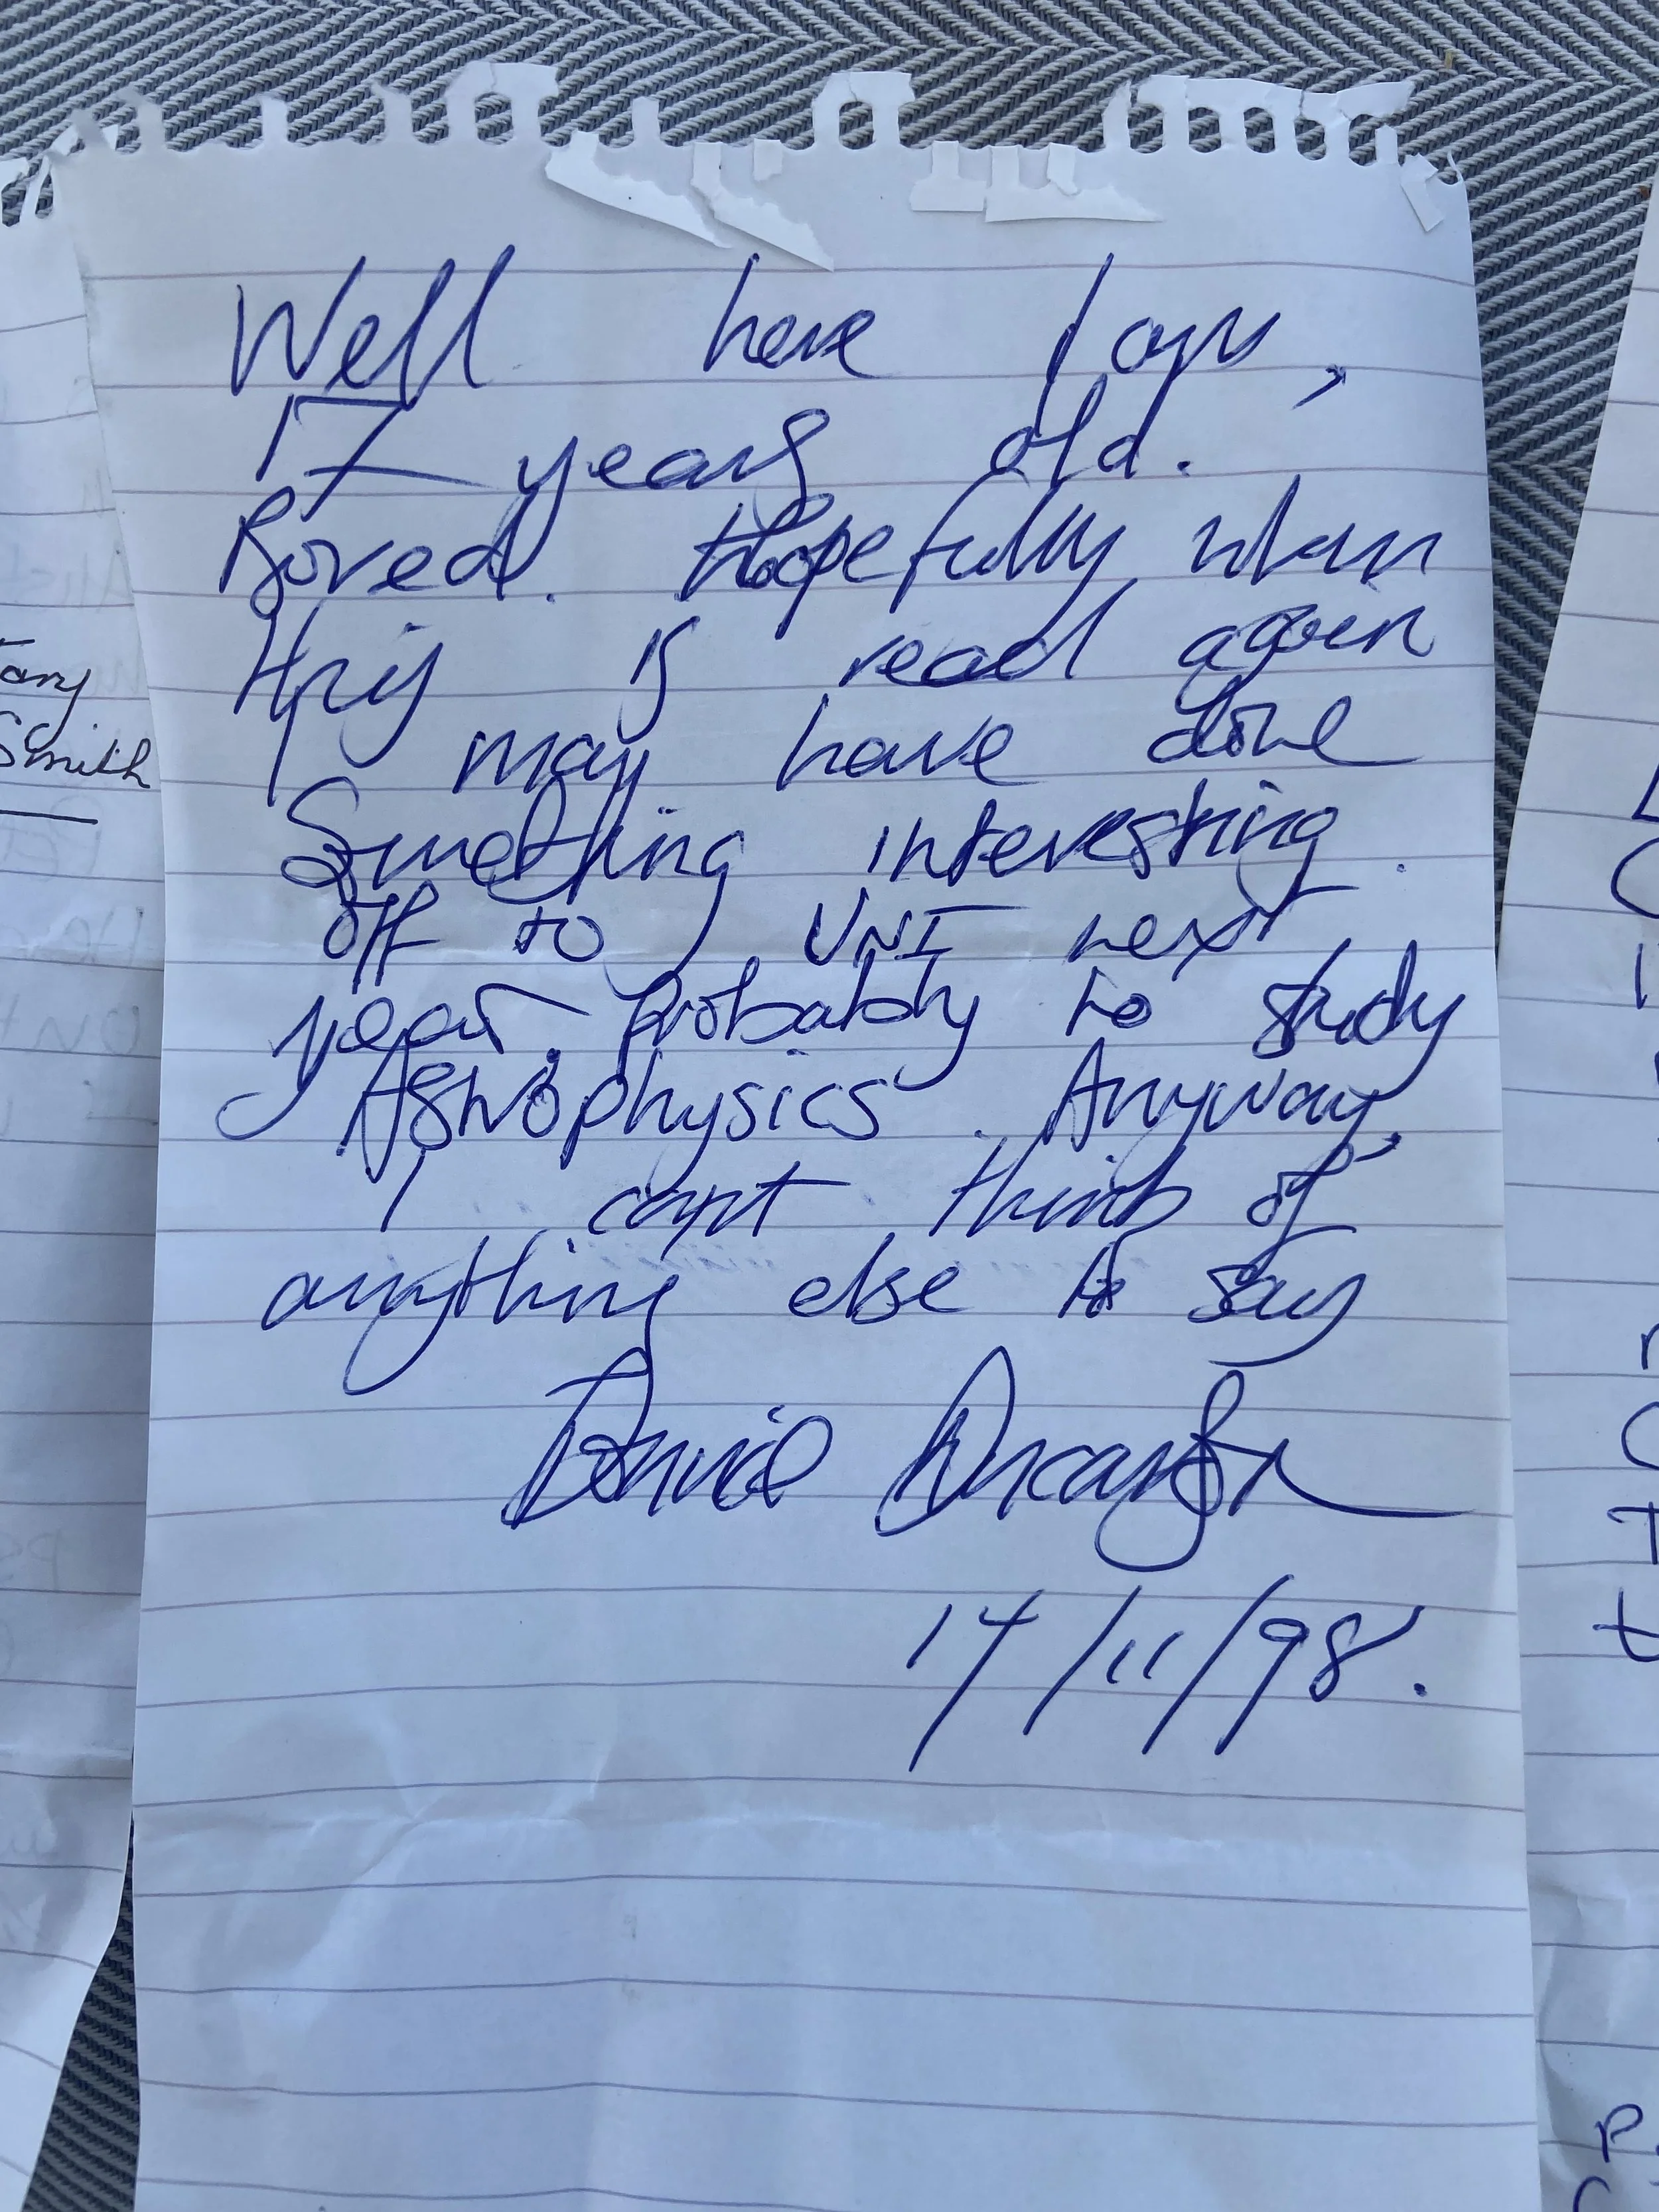 Well here I am,
17 years old.
Bored. Hopefully when
this is read again
I may have done
Something interesting.
off to UNI next
year. Probably to study
Astrophysics. Anyway,
I cant think of
anything else to say
David
14/11/98.
Smith